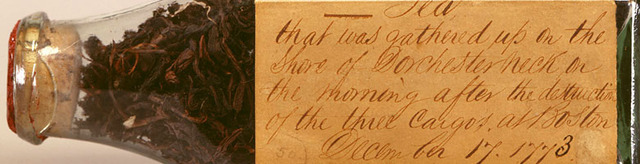 Tea
that was gathered up on the
Shore of Dorchester neck on
the morning after the destruction
of the three Cargos, at Boston
December 17. 1773